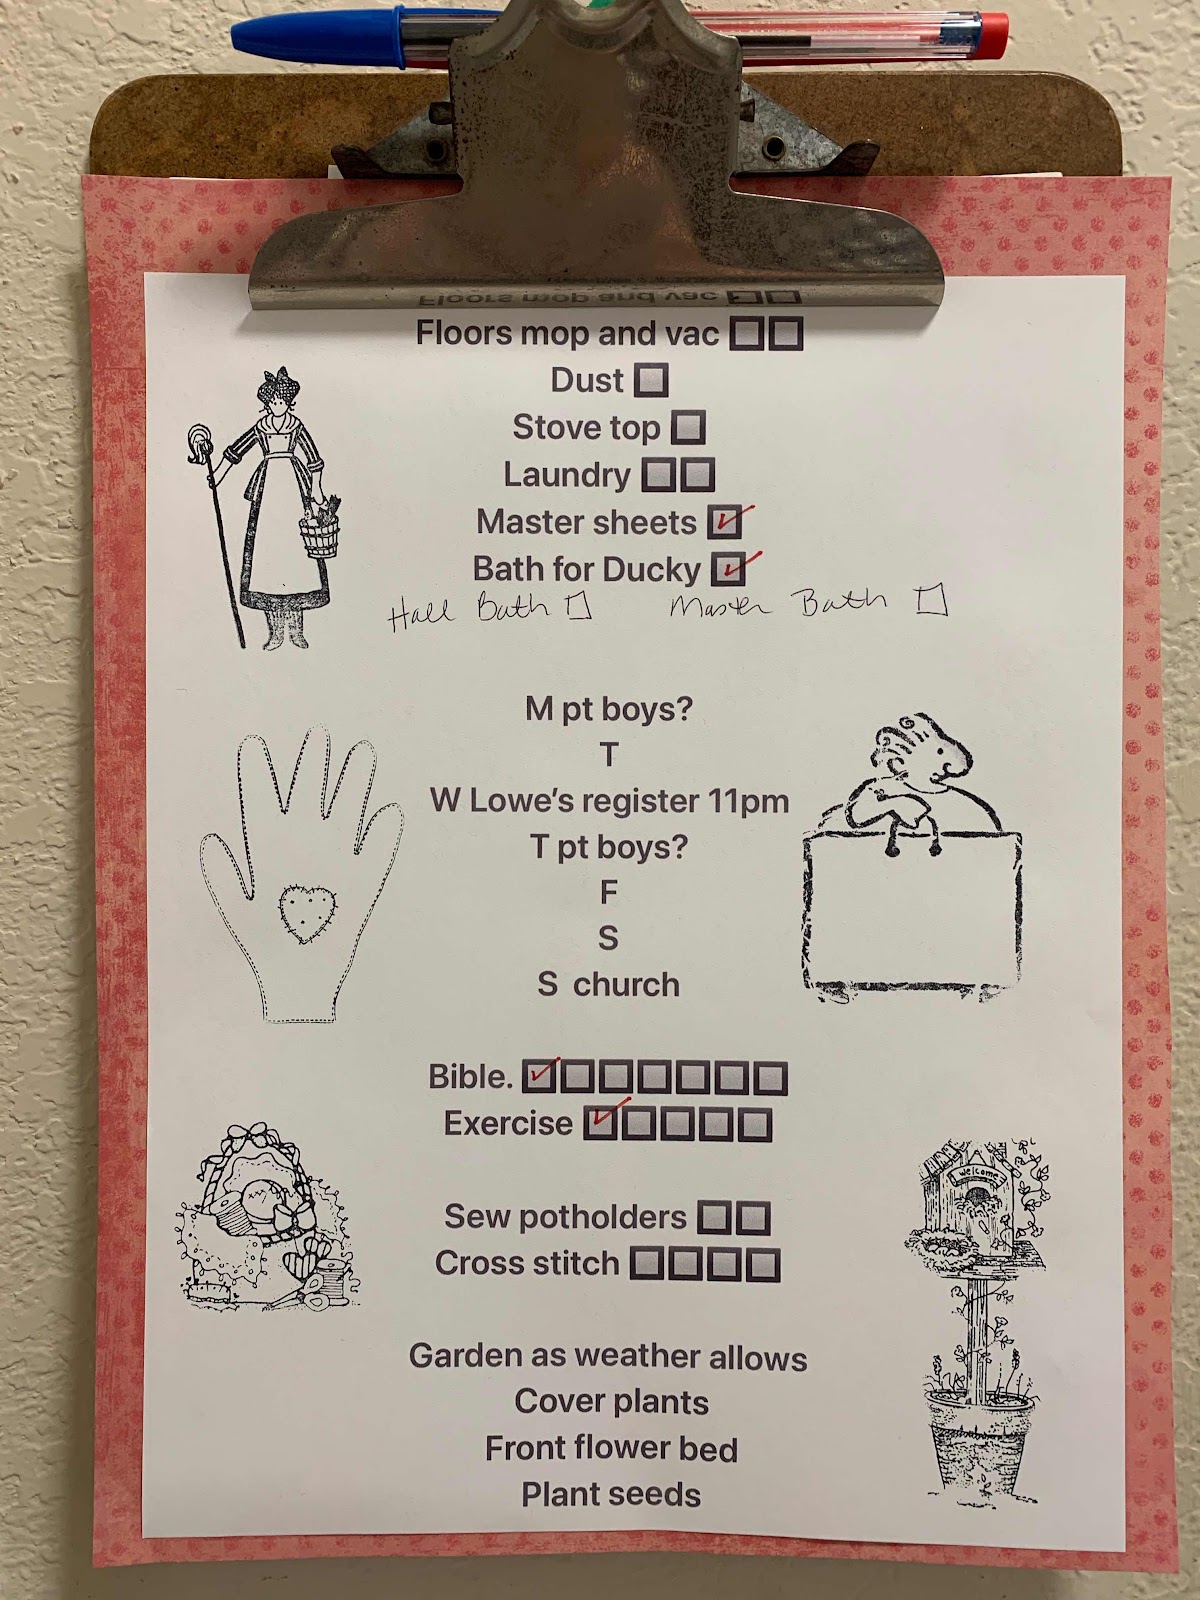 Floors mop and vac
Dust
Stove top
Laundry
Master sheets
Bath for Ducky
Hall Bath Master Bath
M pt boys?
T
W Lowe's register 11pm
T pt boys?
F
S
S church
Bible.
Exercise
welcome
Sew potholders
Cross stitch
Garden as weather allows
Cover plants
Front flower bed
Plant seeds